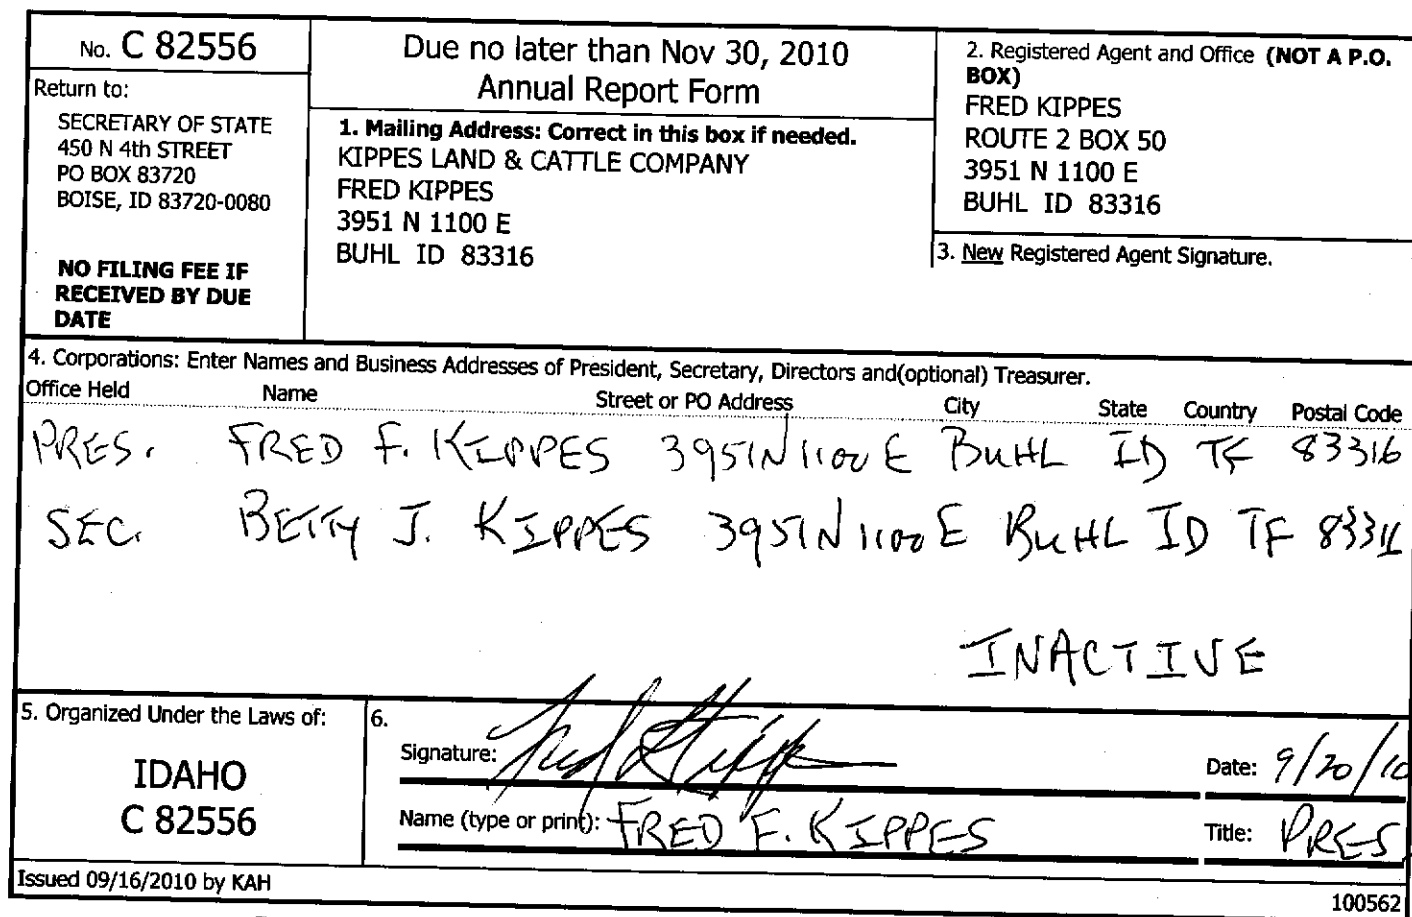 No. C 82556
Return to:
SECRETARY OF STATE
450 N 4th STREET
PO BOX 83720
BOISE, ID 83720-0080
NO FILING FEE IF
RECEIVED BY DUE
DATE
Due no later than Nov 30, 2010
Annual Report Form
1. Mailing Address: Correct in this box if needed.
KIPPES LAND & CATTLE COMPANY
FRED KIPPES
3951 N 1100 E
BUHL ID 83316
2. Registered Agent and Office (NOT A P.O.
BOX)
FRED KIPPES
ROUTE 2 BOX 50
3951 N 1100 E
BUHL ID 83316
3. New Registered Agent Signature.
4. Corporations: Enter Names and Business Addresses of President, Secretary, Directors and(optional) Treasurer.
Office Held Name Street or PO Address City State Country Postal Code
PRES. FRED F. KIPPES 3951 N 1100 E BUHL ID TF 83316
SEC. BETTY J. KIPPES 3951 N 1100 E BUHL ID TF 8331
INACTIVE
5. Organized Under the Laws of:
IDAHO
C 82556
6.
Signature:
Date: 9/20/10
Name (type or print): FRED F. KIPPES
Title: PRES
Issued 09/16/2010 by KAH
100562